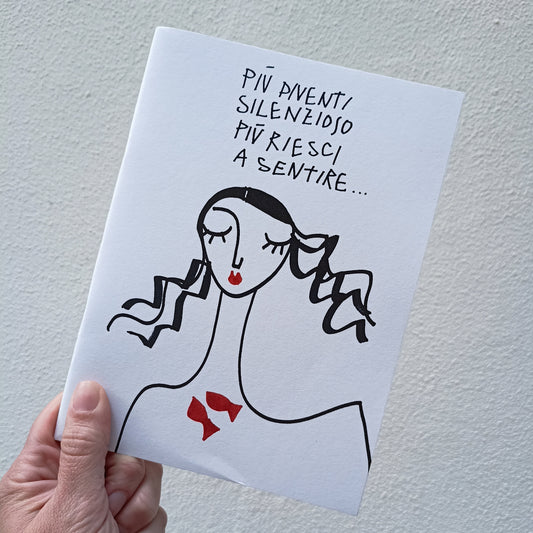 PIÙ DIVENTI
SILENZIOSO
PIÙ RIESCI
A SENTIRE...